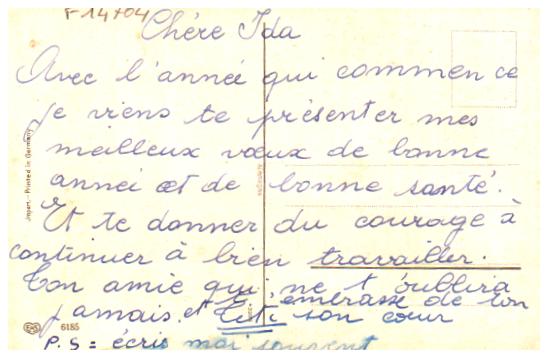 F 14704
Chére Ida
Avec l'année qui commence
je viens te présenter mes
meilleux vœux de bonne
année et de bonne santé.
Et te donner du courage à
continuer à bien travailler.
Ton amie qui ne t'oublira
jamais. et t'embrasse de ton
son cœur
P.S = écris moi souvent
Import. - Printed in Germany
6185